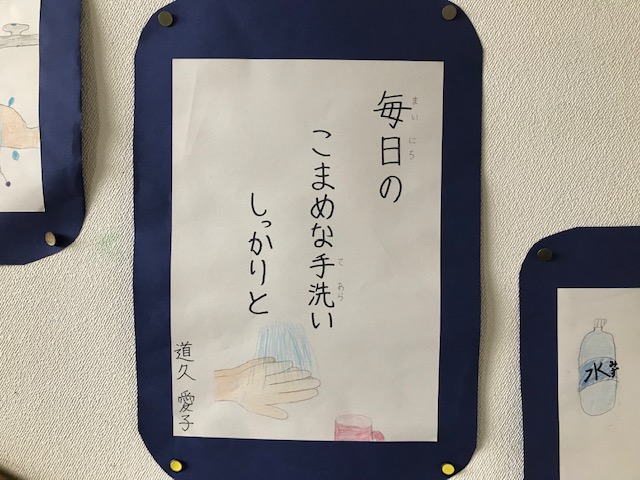 毎日の
まいにち
こまめな手洗い
てあら
しっかりと
道久 愛子
水
みず